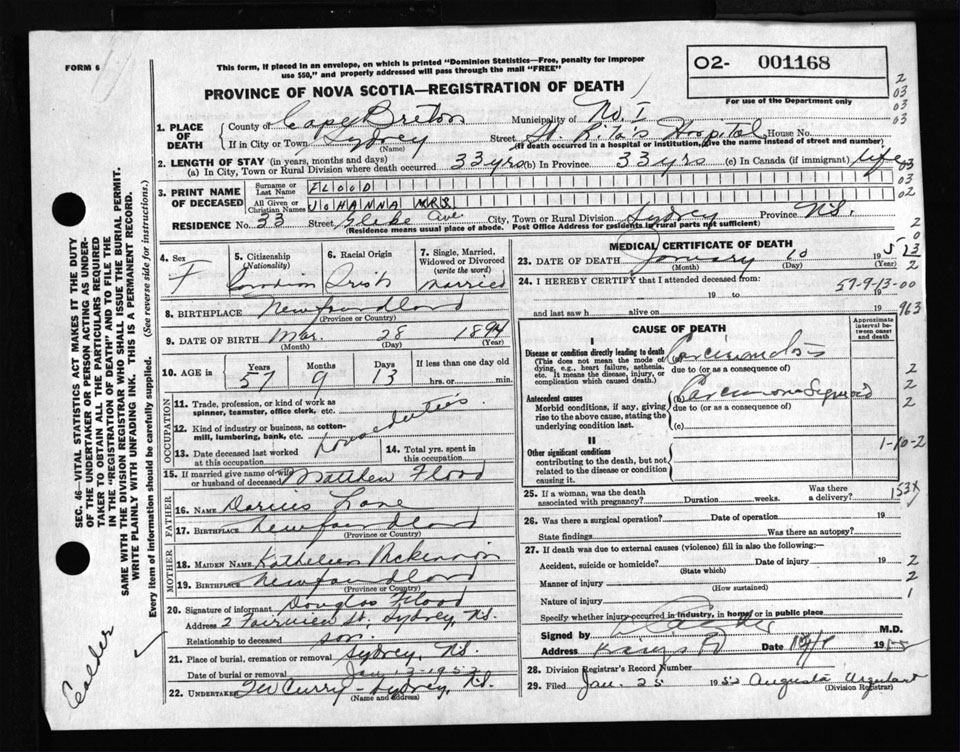 FORM 6
This form, if placed in an envelope, on which is printed "Dominion Statistics—Free, penalty for improper
use $50," and properly addressed will pass through the mail "FREE"
O2- 001168
For use of the Department only
PROVINCE OF NOVA SCOTIA—REGISTRATION OF DEATH
1. PLACE OF DEATH
County of Cape Breton Municipality of No. 1
If in City or Town Sydney Street St. Rita's Hospital House No.
(Name) (If death occurred in a hospital or institution, give the name instead of street and number)
2. LENGTH OF STAY (in years, months and days)
(a) In City, Town or Rural Division where death occurred 33 yrs (b) In Province 33 yrs (c) In Canada (if immigrant) life
3. PRINT NAME OF DECEASED
Surname or Last Name FLOOD
All Given or Christian Names JOHANNA MRS.
RESIDENCE No. 33 Street Glebe Ave City, Town or Rural Division Sydney Province N.S.
(Residence means usual place of abode. Post Office Address for residents in rural parts not sufficient)
4. Sex
F
5. Citizenship
(Nationality)
Canadian
6. Racial Origin
Irish
7. Single, Married,
Widowed or Divorced
(write the word)
Married
8. BIRTHPLACE Newfoundland
(Province or Country)
9. DATE OF BIRTH Mar. 28 1894
(Month) (Day) (Year)
10. AGE in
Years 57
Months 9
Days 13
If less than one day old
hrs. or min.
OCCUPATION
11. Trade, profession, or kind of work as
spinner, teamster, office clerk, etc.
12. Kind of industry or business, as cotton-
mill, lumbering, bank, etc.
duties
13. Date deceased last worked
at this occupation
14. Total yrs. spent in
this occupation
15. If married give name of wife
or husband of deceased Matthew Flood
FATHER
16. NAME Darius Lane
17. BIRTHPLACE Newfoundland
(Province or Country)
MOTHER
18. MAIDEN NAME Kathleen McKinnon
19. BIRTHPLACE Newfoundland
(Province or Country)
20. Signature of informant Douglas Flood
Address 2 Fairview St., Sydney, N.S.
Relationship to deceased son.
21. Place of burial, cremation or removal Sydney, N.S.
Date of burial or removal Jan 13 - 1952
22. UNDERTAKER Curry - Sydney, N.S.
(Name and Address)
MEDICAL CERTIFICATE OF DEATH
23. DATE OF DEATH January 10 19 52
(Month) (Day) (Year)
24. I HEREBY CERTIFY that I attended deceased from:
57-9-13-00
19 to 19
and last saw h alive on 19 963
CAUSE OF DEATH
Approximate
interval be-
tween onset
and death
I
Disease or condition directly leading to death
(This does not mean the mode of
dying, e.g., heart failure, asthenia,
etc. It means the disease, injury, or
complication which caused death.)
(a) Carcinomatosis
due to (or as a consequence of)
Antecedent causes
Morbid conditions, if any, giving
rise to the above cause, stating the
underlying condition last.
(b) Carcinoma Sigmoid
due to (or as a consequence of)
(c)
II
Other significant conditions
contributing to the death, but not
related to the disease or condition
causing it.
1-10-2
25. If a woman, was the death
associated with pregnancy? Duration weeks. Was there
a delivery?
153X
26. Was there a surgical operation? Date of operation 19
State findings Was there an autopsy?
27. If death was due to external causes (violence) fill in also the following:—
Accident, suicide or homicide? Date of injury 19
(State which)
Manner of injury
(How sustained)
Nature of injury
Specify whether injury occurred in industry, in home, or in public place
Signed by M.D.
Address Kings Rd Date 19
28. Division Registrar's Record Number
29. Filed Jan. 25 19 52 Augusta Urquhart
(Division Registrar)
SEC. 46—VITAL STATISTICS ACT MAKES IT THE DUTY
OF THE UNDERTAKER OR PERSON ACTING AS UNDER-
TAKER TO OBTAIN ALL THE PARTICULARS REQUIRED
IN THE "REGISTRATION OF DEATH" AND TO FILE THE
SAME WITH THE DIVISION REGISTRAR WHO SHALL ISSUE THE BURIAL PERMIT.
WRITE PLAINLY WITH UNFADING INK. THIS IS A PERMANENT RECORD.
Every item of information should be carefully supplied. (See reverse side for instructions.)